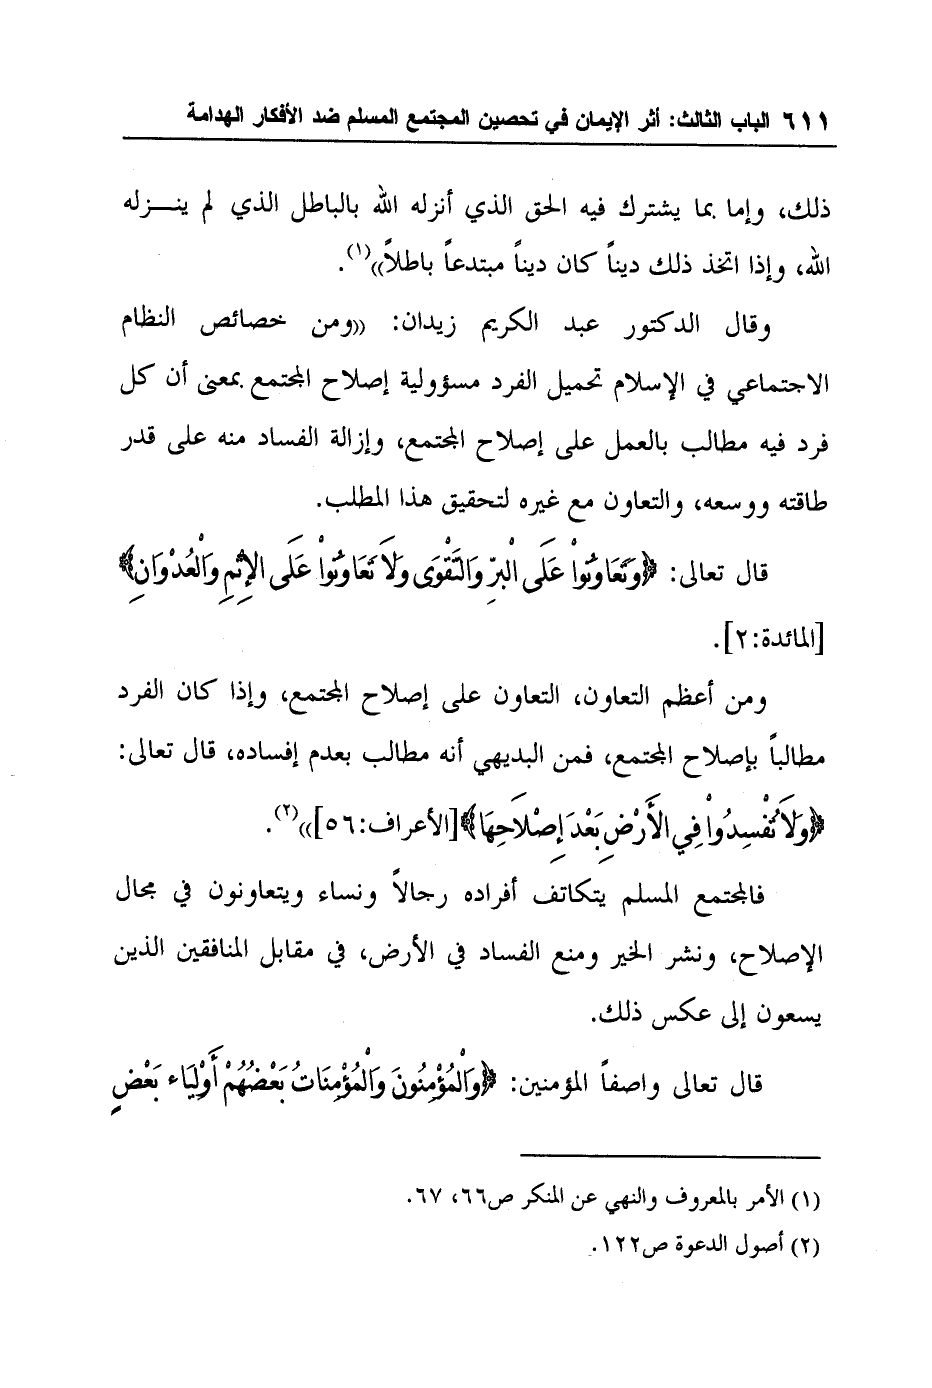 ٦١١ الباب الثالث: أثر الإيمان في تحصين المجتمع المسلم ضد الأفكار الهدامة
ذلك، وإما بما يشترك فيه الحق الذي أنزله الله بالباطل الذي لم ينـــزله
الله، وإذا اتخذ ذلك ديناً كان ديناً مبتدعاً باطلاً»(١).
وقال الدكتور عبد الكريم زيدان: «ومن خصائص النظام
الاجتماعي في الإسلام تحميل الفرد مسؤولية إصلاح المجتمع بمعنى أن كل
فرد فيه مطالب بالعمل على إصلاح المجتمع، وإزالة الفساد منه على قدر
طاقته ووسعه، والتعاون مع غيره لتحقيق هذا المطلب.
قال تعالى: ﴿وَتَعَاوَنُواْ عَلَى الْبرِّ وَالتَّقْوَى وَلاَ تَعَاوَنُواْ عَلَى الإِثْمِ وَالْعُدْوَانِ﴾
[المائدة:٢].
ومن أعظم التعاون، التعاون على إصلاح المجتمع، وإذا كان الفرد
مطالباً بإصلاح المجتمع، فمن البديهي أنه مطالب بعدم إفساده، قال تعالى:
﴿وَلاَ تُفْسِدُواْ فِي الأَرْضِ بَعْدَ إِصْلاَحِهَا﴾[الأعراف:٥٦]»(٢).
فالمجتمع المسلم يتكاتف أفراده رجالاً ونساء ويتعاونون في مجال
الإصلاح، ونشر الخير ومنع الفساد في الأرض، في مقابل المنافقين الذين
يسعون إلى عكس ذلك.
قال تعالى واصفاً المؤمنين: ﴿وَالْمُؤْمِنُونَ وَالْمُؤْمِنَاتُ بَعْضُهُمْ أَوْلِيَاء بَعْضٍ
(١) الأمر بالمعروف والنهي عن المنكر ص٦٦، ٦٧.
(٢) أصول الدعوة ص١٢٢.